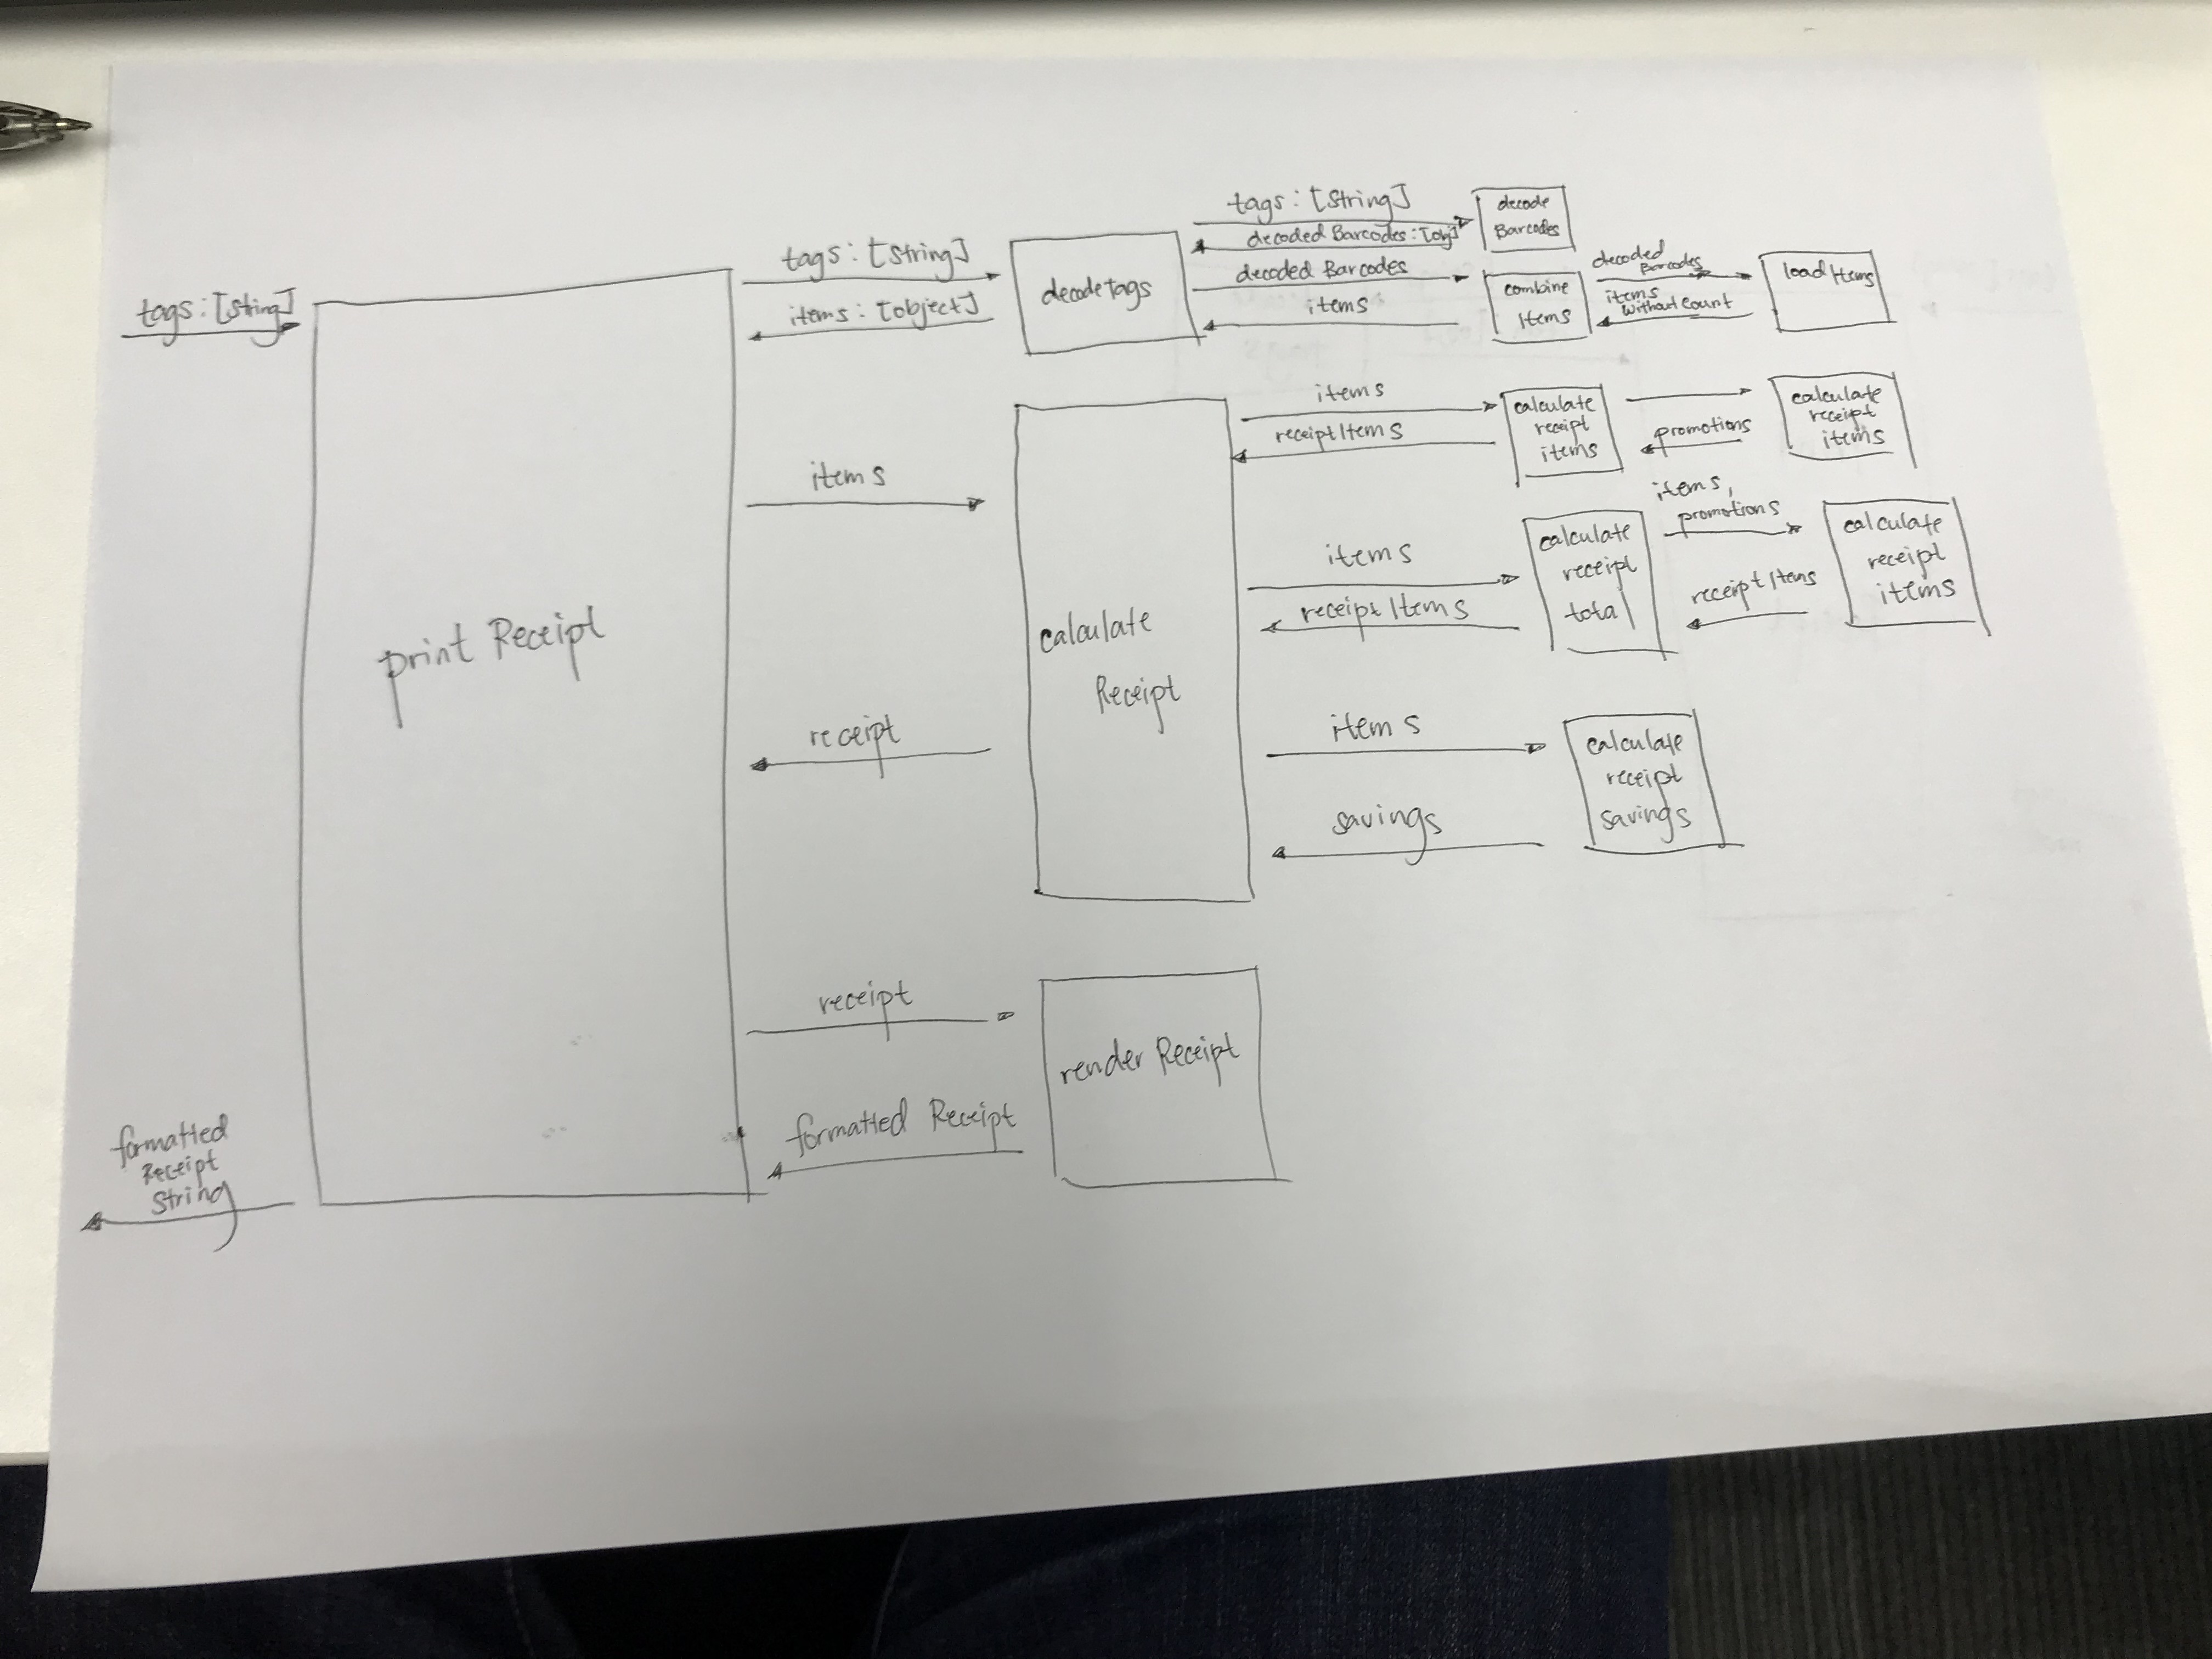 tags: [String]
print Receipt
formatted
Receipt
String
tags: [String]
items: [object]
decode tags
tags: [String]
decoded Barcodes: [obj]
decode
Barcodes
decoded Barcodes
items
combine
Items
decoded
Barcodes
items
without count
load Items
items
calculate
Receipt
receipt
items
receiptItems
calculate
receipt
items
promotions
calculate
receipt
items
items
receipt Items
calculate
receipt
total
items,
promotions
receipt Items
calculate
receipt
items
items
savings
calculate
receipt
savings
receipt
formatted Receipt
render Receipt